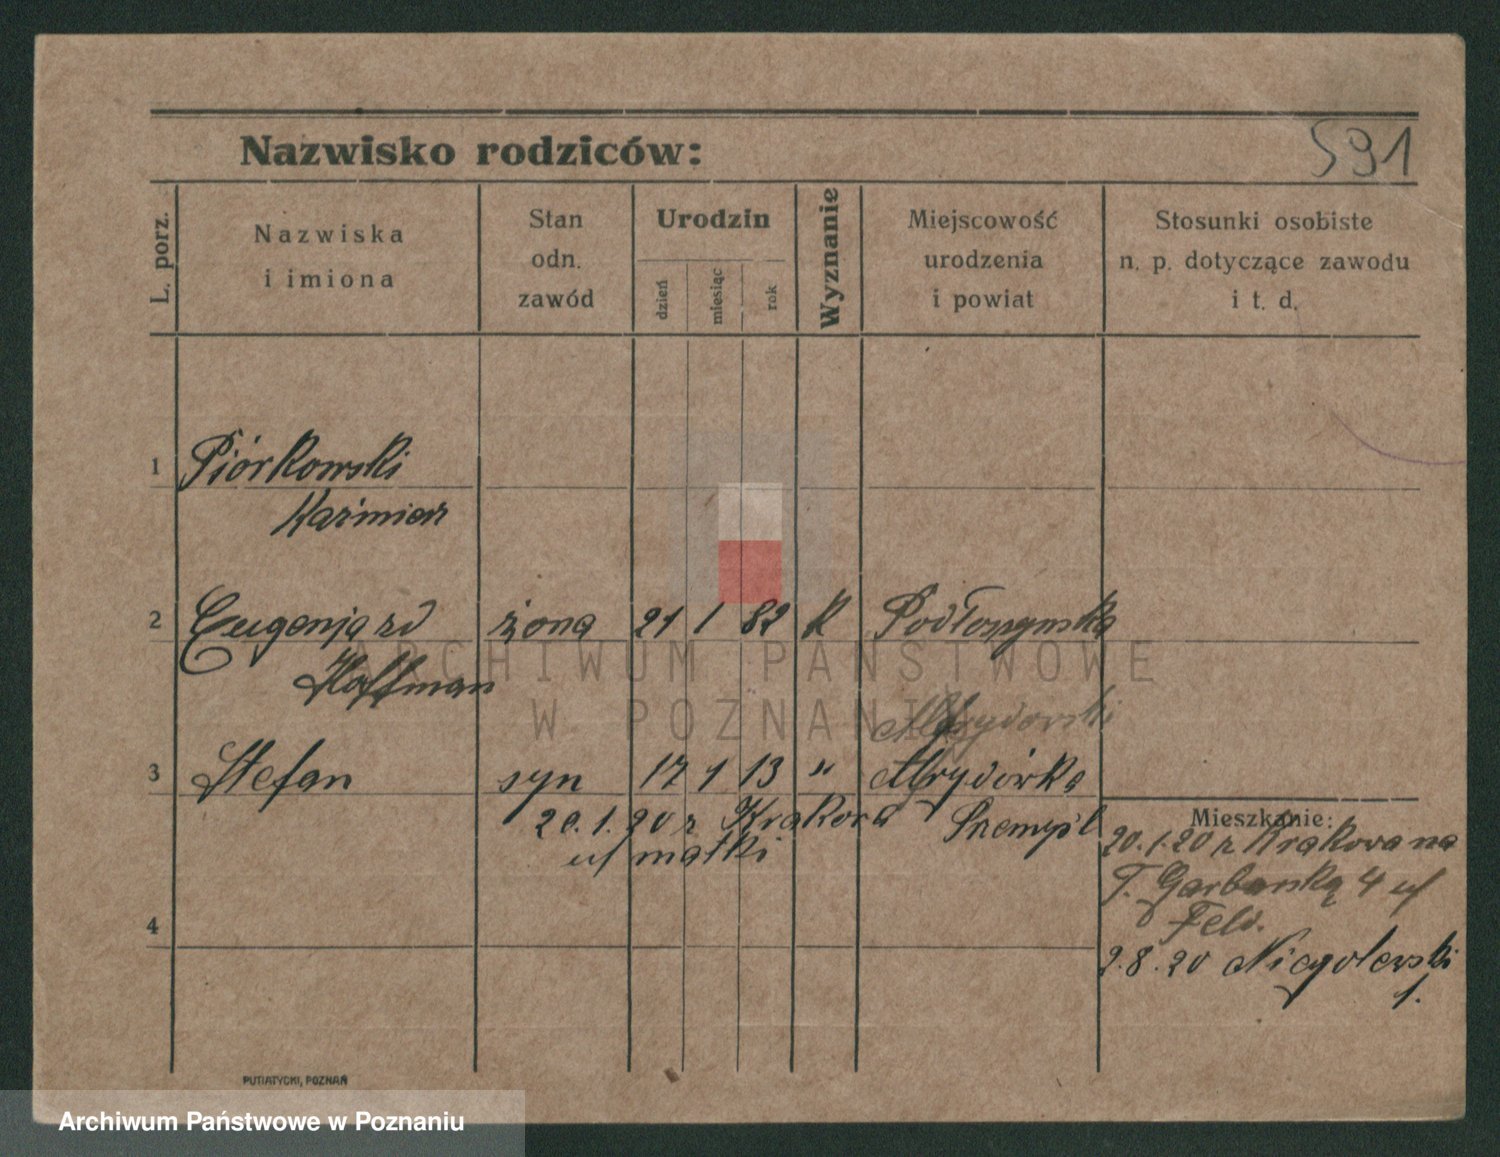 591
Nazwisko rodziców:
L. porz.
Nazwiska
i imiona
Stan
odn.
zawód
Urodzin
dzień
miesiąc
rok
Wyznanie
Miejscowość
urodzenia
i powiat
Stosunki osobiste
n. p. dotyczące zawodu
i t. d.
1 Piórkowski
Kaźmierz
2 Eugenja zd żona 21 1 82 k
Hoffman
ARCHIWUM PAŃSTWOWE
W POZNANIU
3 Stefan syn 17 1 13 "
20.1.20 z Krakowa
u/ matki
Mieszkanie:
20.1.20 z Krakowa na
T. Garbarską 4 u/
Feld.
2.8.20 Niegolewski
1.
4
PUTIATYCKI, POZNAŃ
Archiwum Państwowe w Poznaniu